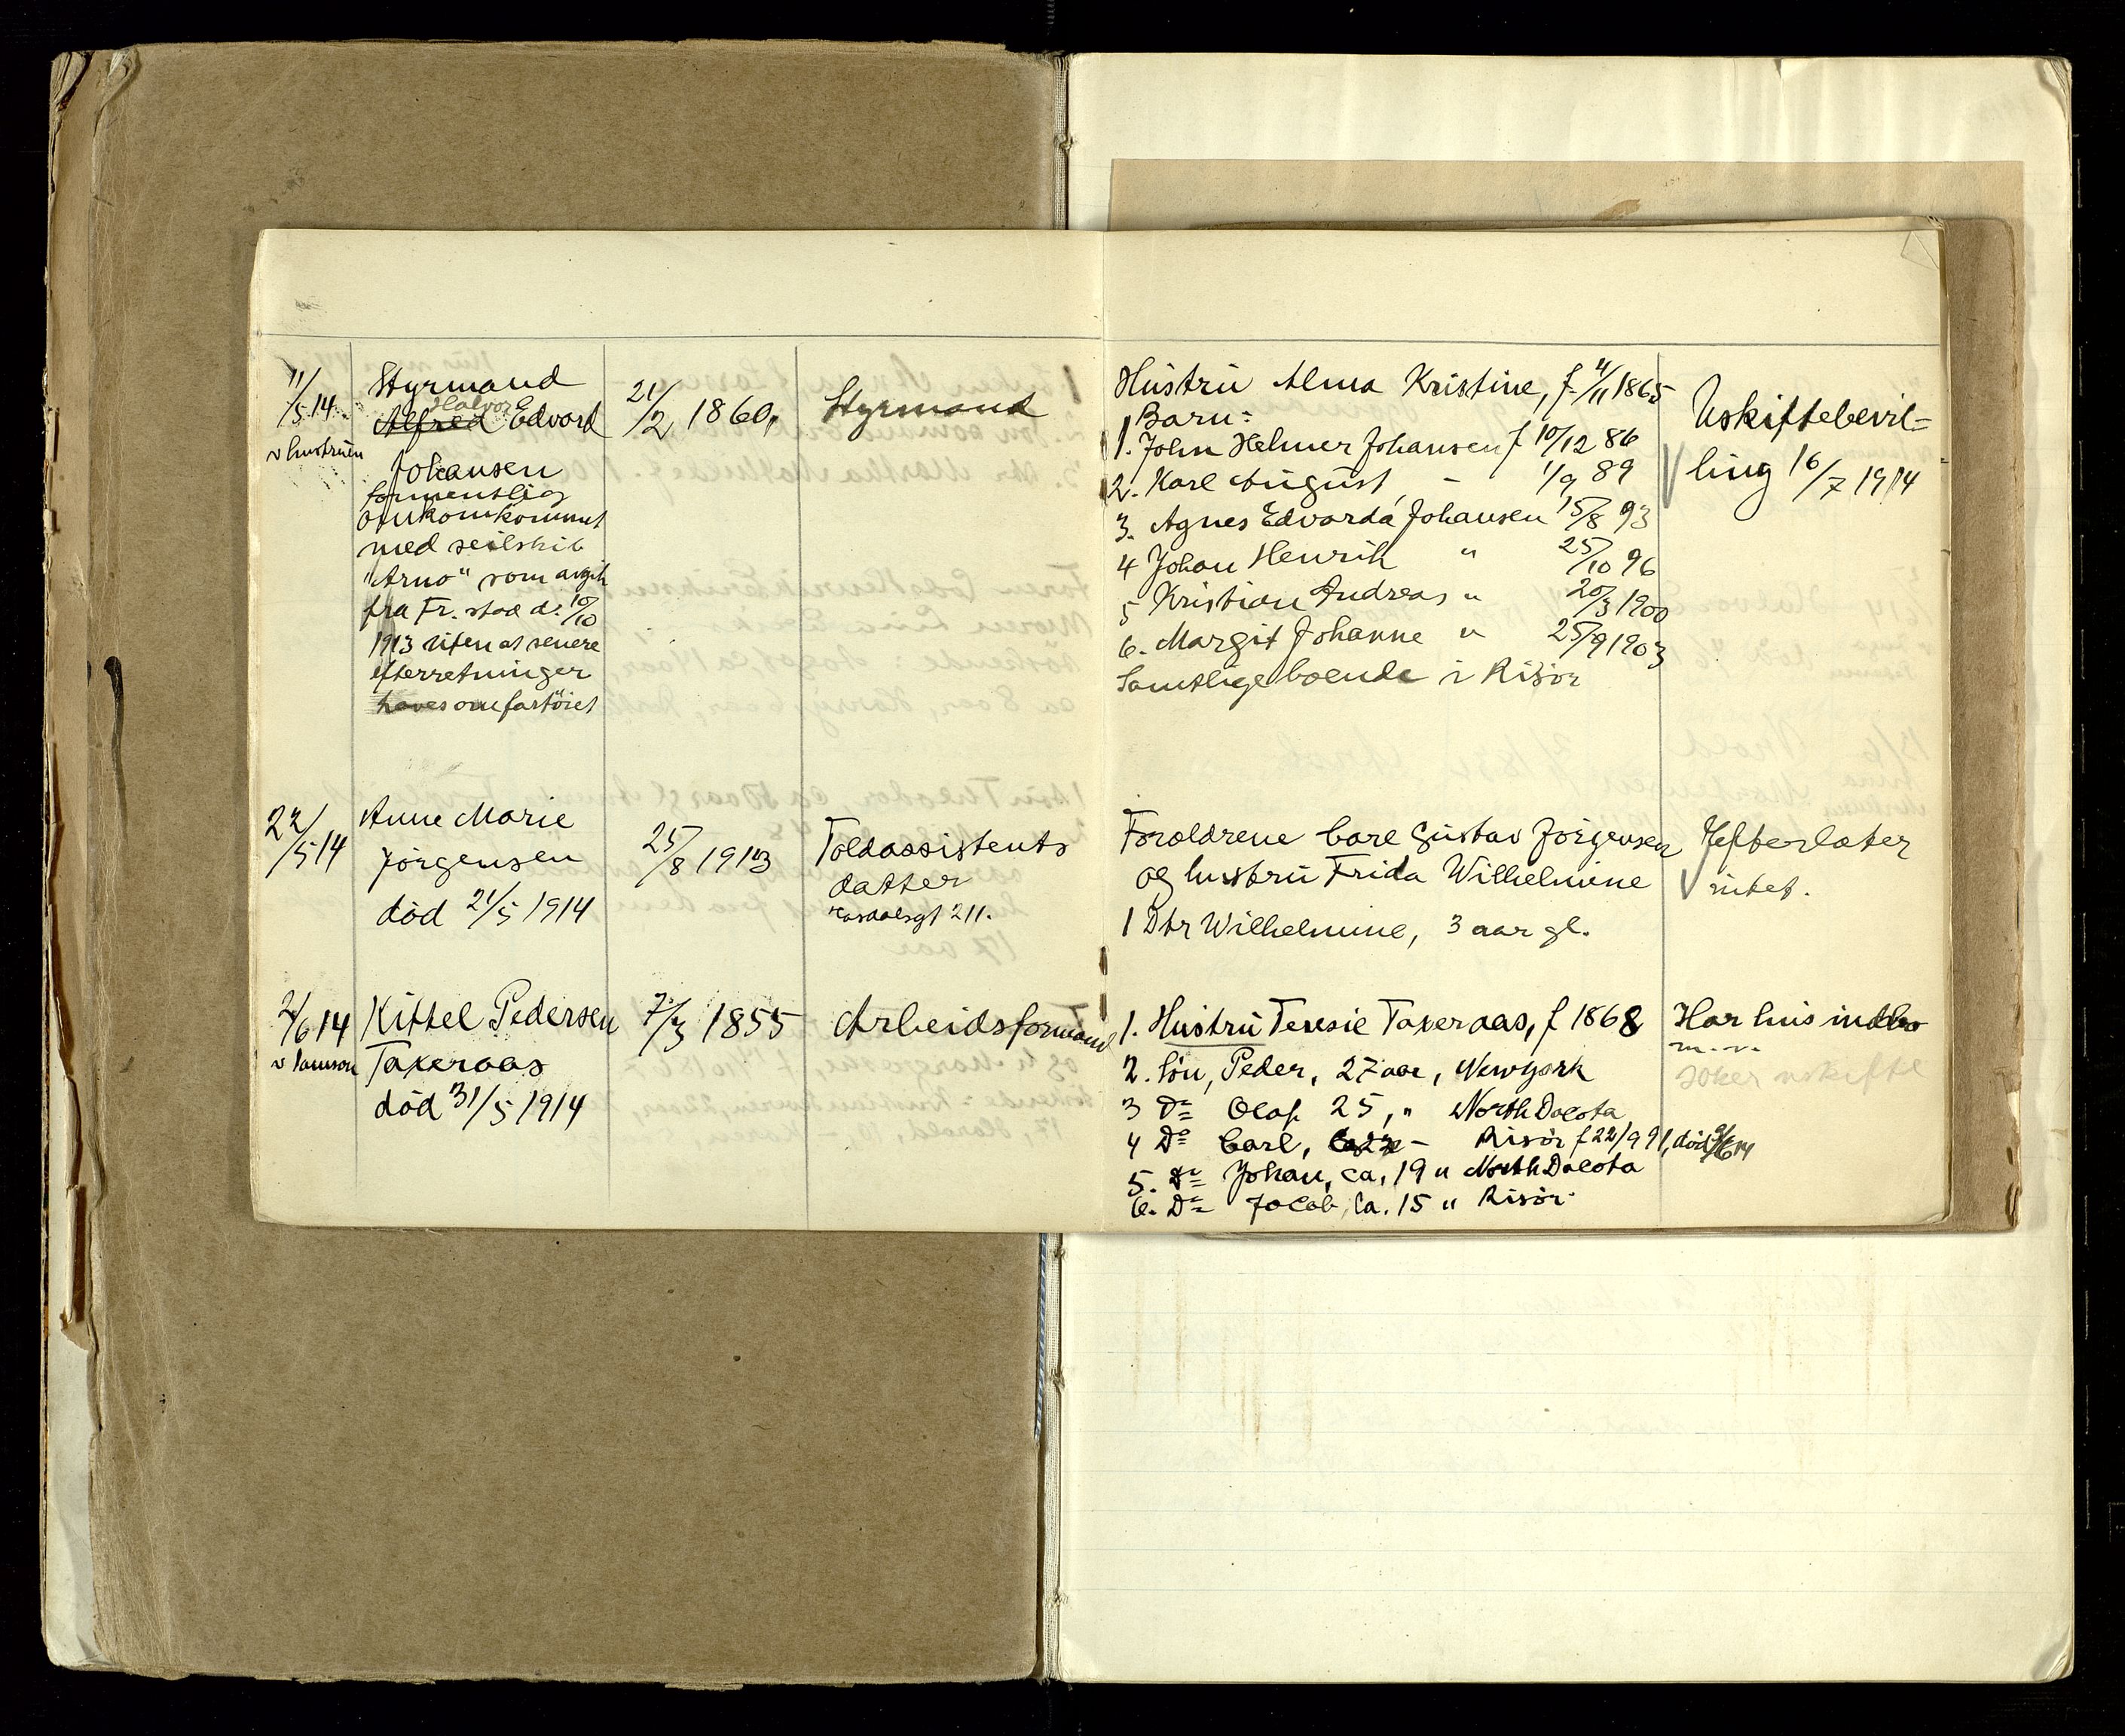 11/5 14.
v hustruen
Styrmand
Halvor
Alfred Edvard
Johansen
formentlig
omkommet
med seilskib
"Arno" som avgik
fra Fr. stad d. 10/10
1913 uten at senere
efterretninger
haves om fartöiet
21/2 1860,
Styrmand
Hustru Alma Kristine, f. 4/11 1865
Barn:
1. John Helmer Johansen f 10/12 86
2. Karl August, - 1/9 89
3. Agnes Edvarda Johansen 15/8 93
4 Johan Henrik " 25/10 96
5 Kristian Andreas " 20/3 1900
6. Margit Johanne " 25/9 1903
Samtlige boende i Risör
Uskiftebevil=
ling 16/7 1914
22/5 14
Anne Marie
Jörgensen
död 21/5 1914
25/8 1913
Toldassistents
datter
211.
Foraldrene Carl Gustav Jörgensen
og hustru Frida Wilhelmine
1 Dtr Wilhelmine, 3 aar gl.
Efterlater
intet.
2/6 14
v
Kittel Pedersen
Taxeraas
död 31/5 1914
7/3 1855
Arbeidsformand
1. Hustru Teresie Taxeraas, f 1868
2. Sön, Peder, 27 aar, Newyork
3 Do Olaf 25, " North Dacota
4 Do Carl, - Risör f 22/9 91, död 9/6 14
5. Do Johan, ca. 19 " North Dacota
6. Do Jacob, Ca. 15 " Risör.
Har hus indbo
m. v.
Söker uskifte